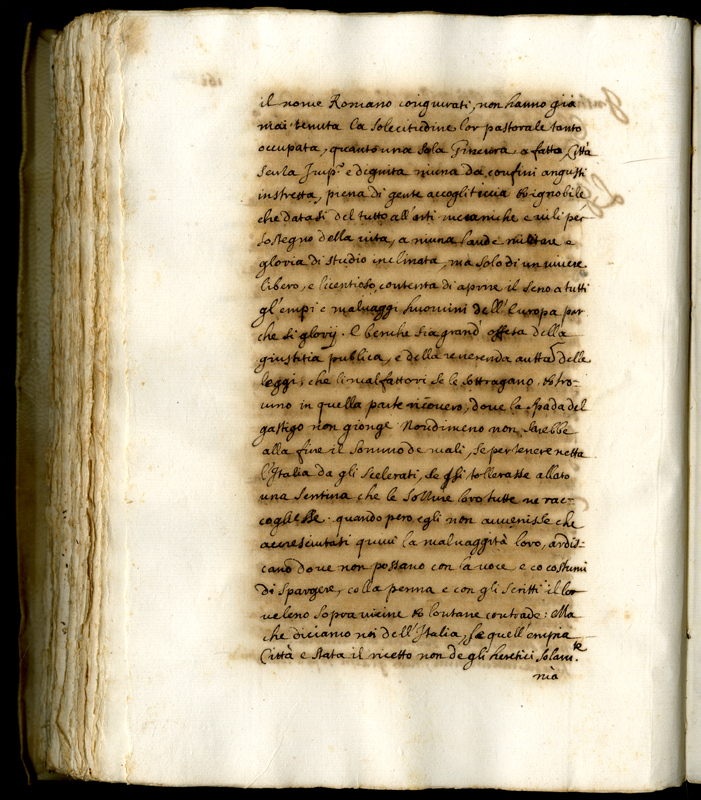 il nome Romano congiurati, non hanno già
mai tenuta la solecitudine lor pastorale tanto
occupata, quanto una sola Gineura, a fatta Città
senza Imp.º e dignita niuna da confini angusti
instretta, piena di gente accogliticcia et ignobile
che datasi del tutto all'arti mecaniche e uili per
sostegno della uita, a niuna laude militare e
gloria di studio inclinata, ma solo di un uiuere
libero, e licentioso contenta di aprire il seno a tutti
gl'empi e maluaggi huomini dell'Europa par
che si glorij. E benche sia grand' offesa della
giustitia publica, e della reuerenda autta delle
leggi, che li malfattori se le sottragano, et tro-
uino in quella parte ricouero, doue la spada del
gastigo non gionge Nondimeno non sarebbe
alla fine il sommo de mali, se per tenere netta
l'Italia da gli scelerati, se gli tollerasse allato
una sentina che le sossure loro tutte ne rac-
cogliesse. quando pero egli non auuenisse che
accresciutasi quiui la maluaggità loro, ardis-
cano doue non possano con la uoce e co costumi
di spargere, colla penna e con gli scritti il lor
ueleno sopra uicine et lontane contrade: Ma
che diciamo noi dell'Italia, se quell'empia
Città e stata il ricetto non de gli heretici solam.te
nia